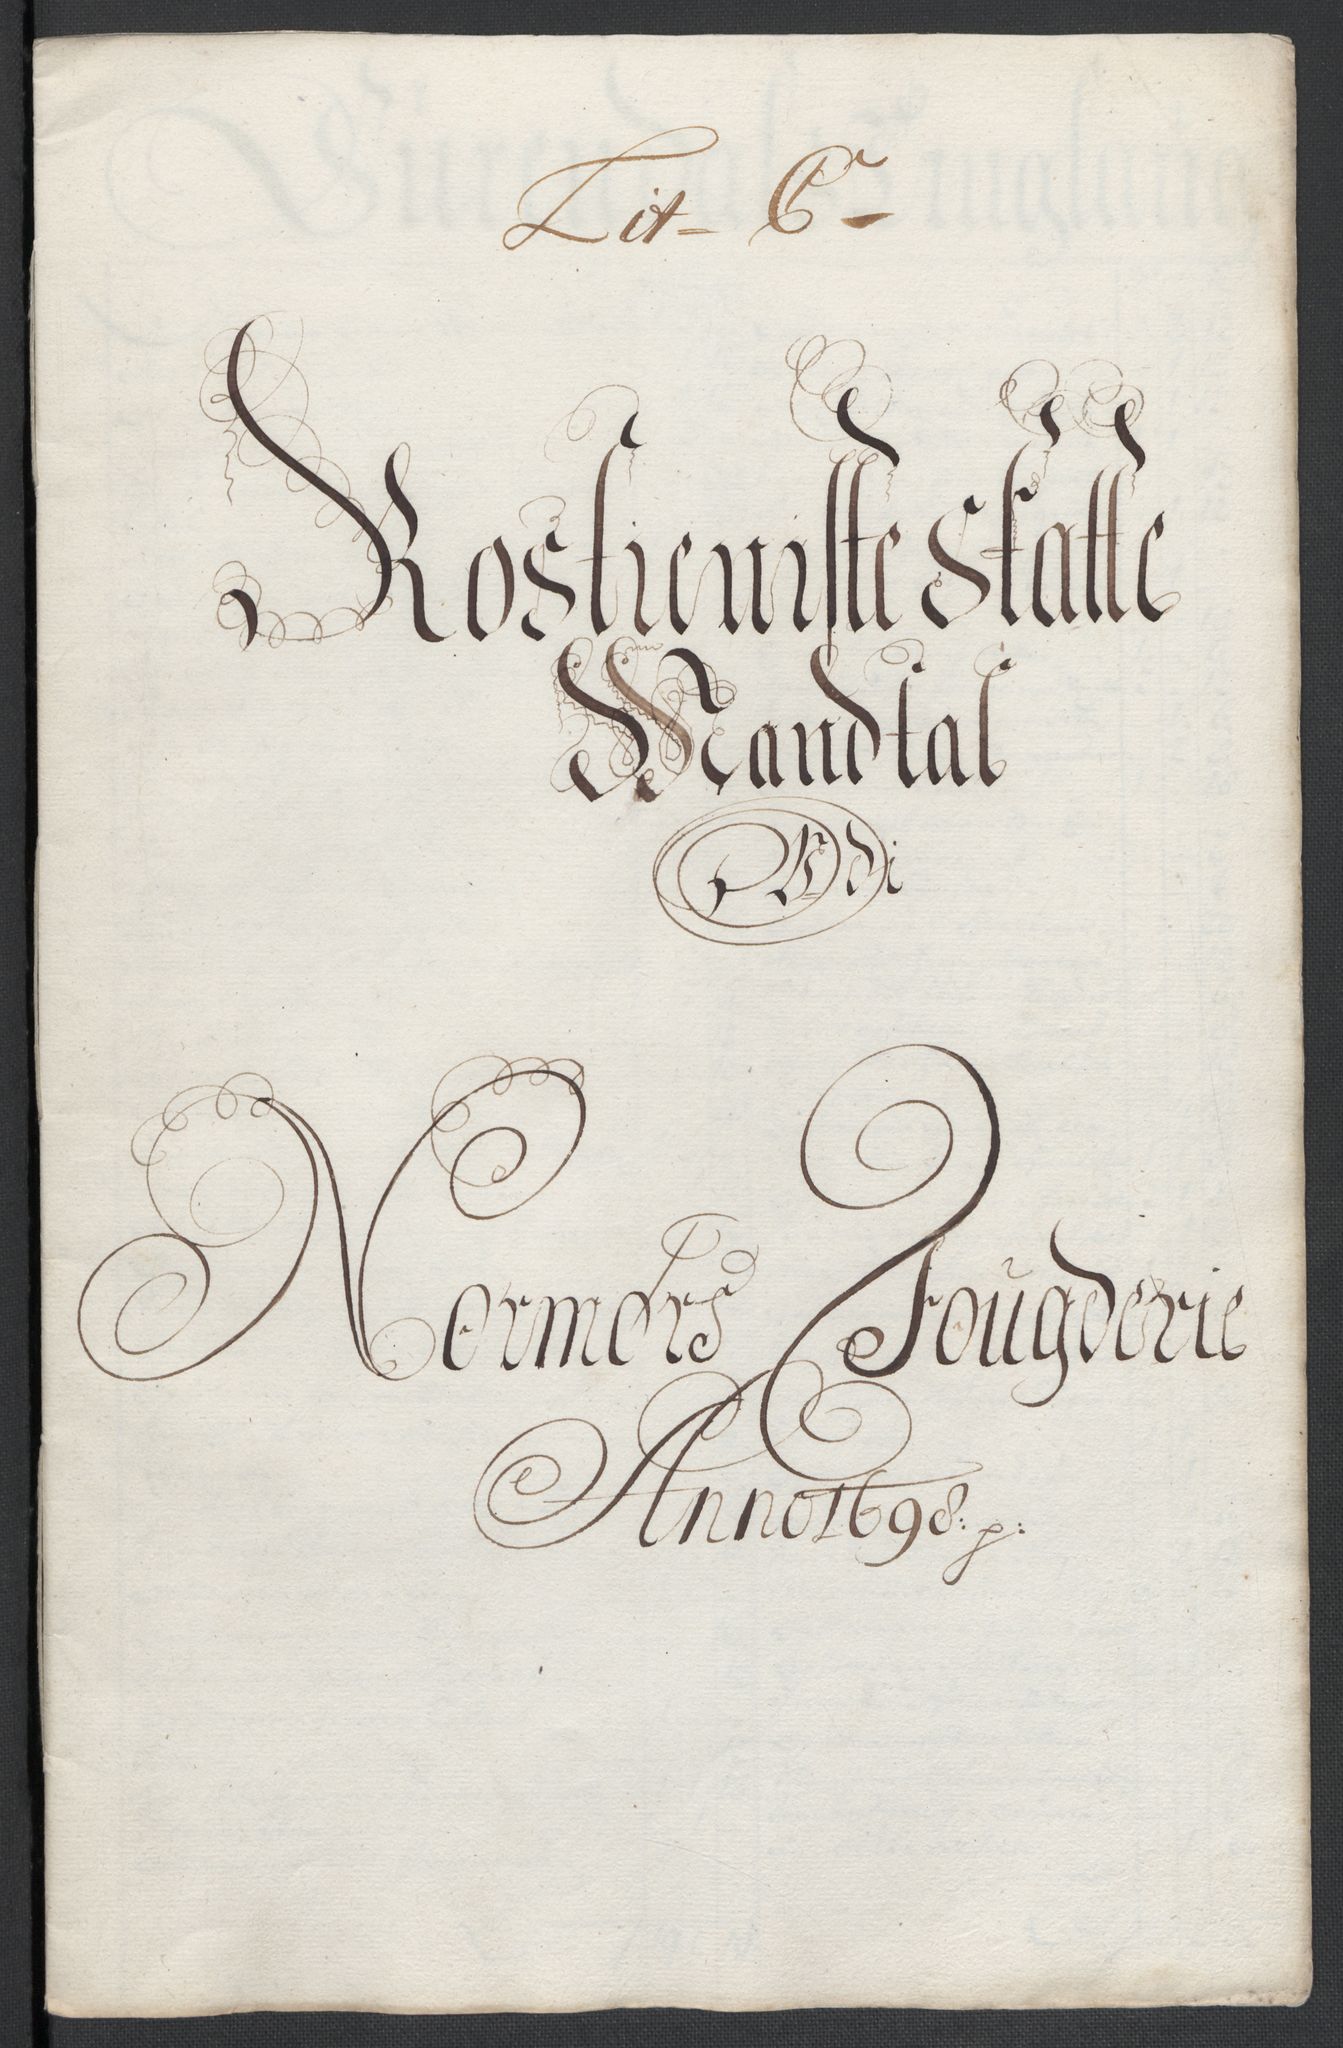 Lit- C
Rostienniste Skatte
Mandtal
Udi
Normørs Fougderie
Anno 1698: p: